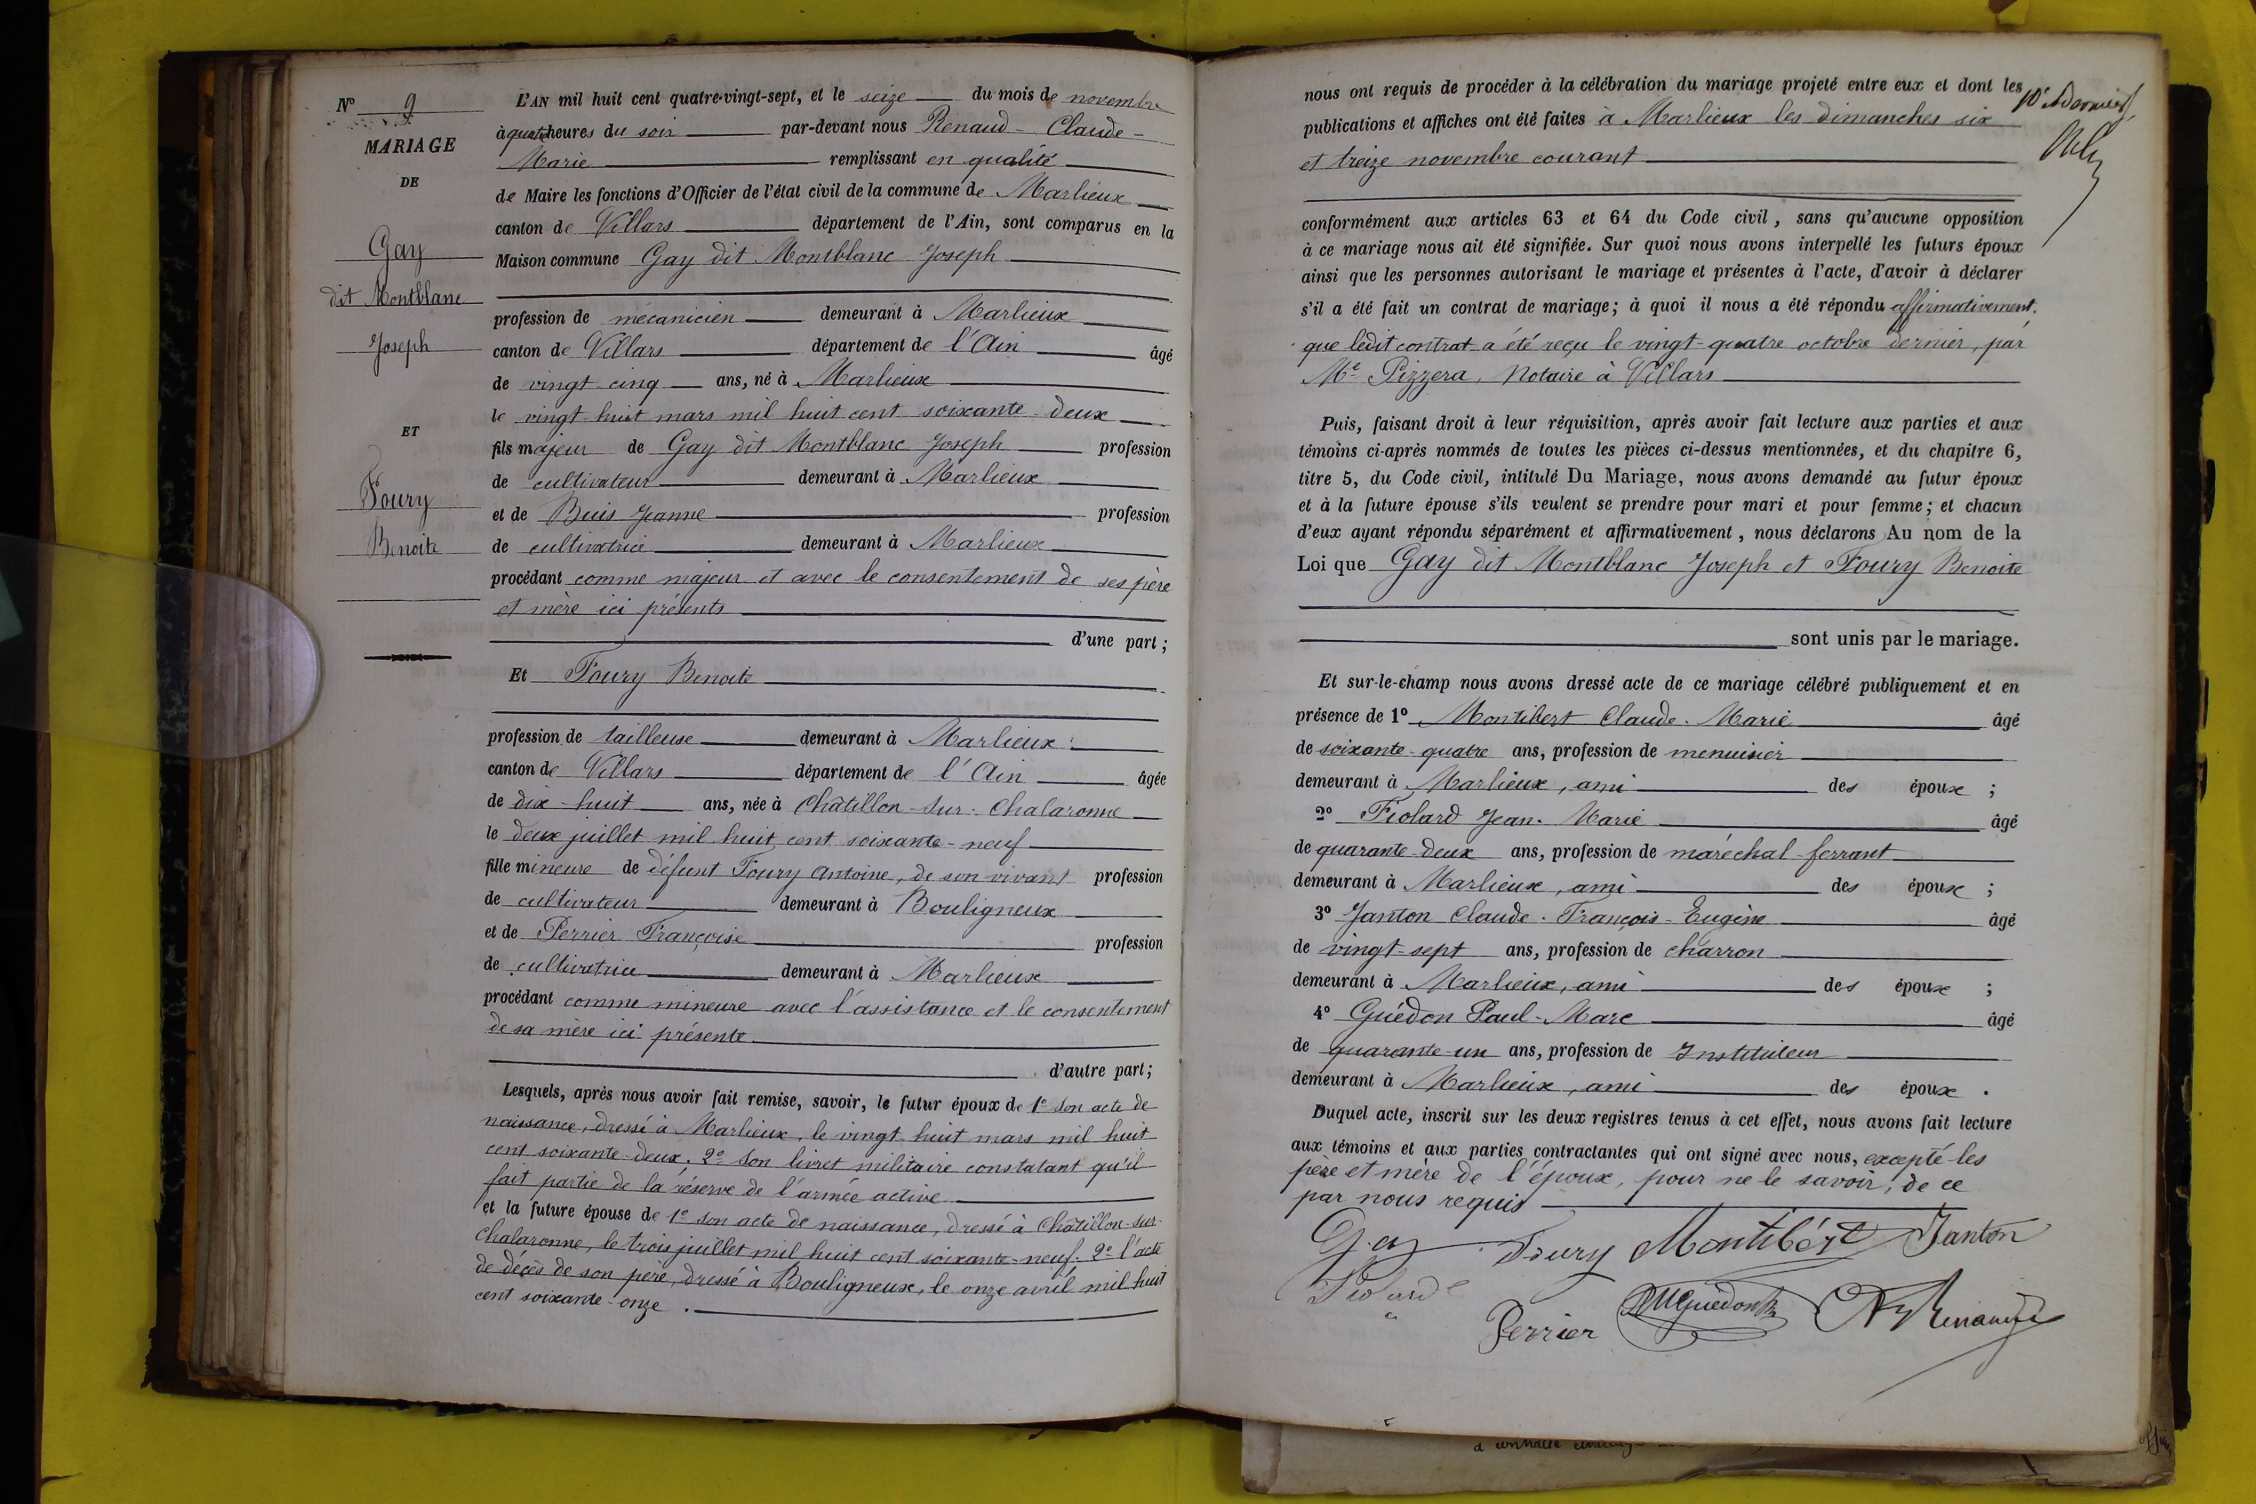 N° 9
MARIAGE
DE
Gay
dit Montblanc
Joseph
ET
Foury
Benoite
L'AN mil huit cent quatre-vingt-sept, et le seize du mois de novembre
à quatre heures du soir par-devant nous Renaud - Claude -
Marie remplissant en qualité
de Maire les fonctions d'Officier de l'état civil de la commune de Marlieux
canton de Villars département de l'Ain, sont comparus en la
Maison commune Gay dit Montblanc Joseph
profession de mécanicien demeurant à Marlieux
canton de Villars département de l'Ain âgé
de vingt cinq ans, né à Marlieux
le vingt huit mars mil huit cent soixante-deux
fils majeur de Gay dit Montblanc Joseph profession
de cultivateur demeurant à Marlieux
et de Buis Jeanne profession
de cultivatrice demeurant à Marlieux
procédant comme majeur et avec le consentement de ses père
et mère ici présents
d'une part ;
Et Foury Benoite
profession de tailleuse demeurant à Marlieux
canton de Villars département de l'Ain âgée
de dix-huit ans, née à Châtillon-sur-Chalaronne
le deux juillet mil huit cent soixante-neuf
fille mineure de défunt Foury Antoine, de son vivant profession
de cultivateur demeurant à Bouligneux
et de Perrier Françoise profession
de cultivatrice demeurant à Marlieux
procédant comme mineure avec l'assistance et le consentement
de sa mère ici présente
d'autre part ;
Lesquels, après nous avoir fait remise, savoir, le futur époux de 1° son acte de
naissance, dressé à Marlieux, le vingt huit mars mil huit
cent soixante-deux. 2° Son livret militaire constatant qu'il
fait partie de la réserve de l'armée active
et la future épouse de 1° son acte de naissance, dressé à Châtillon-sur-
Chalaronne, le trois juillet mil huit cent soixante-neuf. 2° l'acte
de décès de son père, dressé à Bouligneux, le onze avril mil huit
cent soixante-onze.
nous ont requis de procéder à la célébration du mariage projeté entre eux et dont les
publications et affiches ont été faites à Marlieux les dimanches six
et treize novembre courant
conformément aux articles 63 et 64 du Code civil, sans qu'aucune opposition
à ce mariage nous ait été signifiée. Sur quoi nous avons interpellé les futurs époux
ainsi que les personnes autorisant le mariage et présentes à l'acte, d'avoir à déclarer
s'il a été fait un contrat de mariage; à quoi il nous a été répondu affirmativement.
que ledit contrat a été reçu le vingt-quatre octobre dernier, par
Me Pizzera, Notaire à Villars
Puis, faisant droit à leur réquisition, après avoir fait lecture aux parties et aux
témoins ci-après nommés de toutes les pièces ci-dessus mentionnées, et du chapitre 6,
titre 5, du Code civil, intitulé Du Mariage, nous avons demandé au futur époux
et à la future épouse s'ils veulent se prendre pour mari et pour femme ; et chacun
d'eux ayant répondu séparément et affirmativement, nous déclarons Au nom de la
Loi que Gay dit Montblanc Joseph et Foury Benoite
sont unis par le mariage.
Et sur-le-champ nous avons dressé acte de ce mariage célébré publiquement et en
présence de 1° Montibert Claude-Marie âgé
de soixante-quatre ans, profession de menuisier
demeurant à Marlieux, ami des époux ;
2° Fiolard Jean-Marie âgé
de quarante-deux ans, profession de maréchal-ferrant
demeurant à Marlieux, ami des époux ;
3° Janton Claude-François-Eugène âgé
de vingt-sept ans, profession de charron
demeurant à Marlieux, ami des époux ;
4° Guédon Paul-Marc âgé
de quarante-un ans, profession de Instituteur
demeurant à Marlieux, ami des époux .
Duquel acte, inscrit sur les deux registres tenus à cet effet, nous avons fait lecture
aux témoins et aux parties contractantes qui ont signé avec nous, excepté les
père et mère de l'époux, pour ne le savoir, de ce
par nous requis
Gay Foury Montibért Janton
Fiolard
Perrier Guédon Renaud